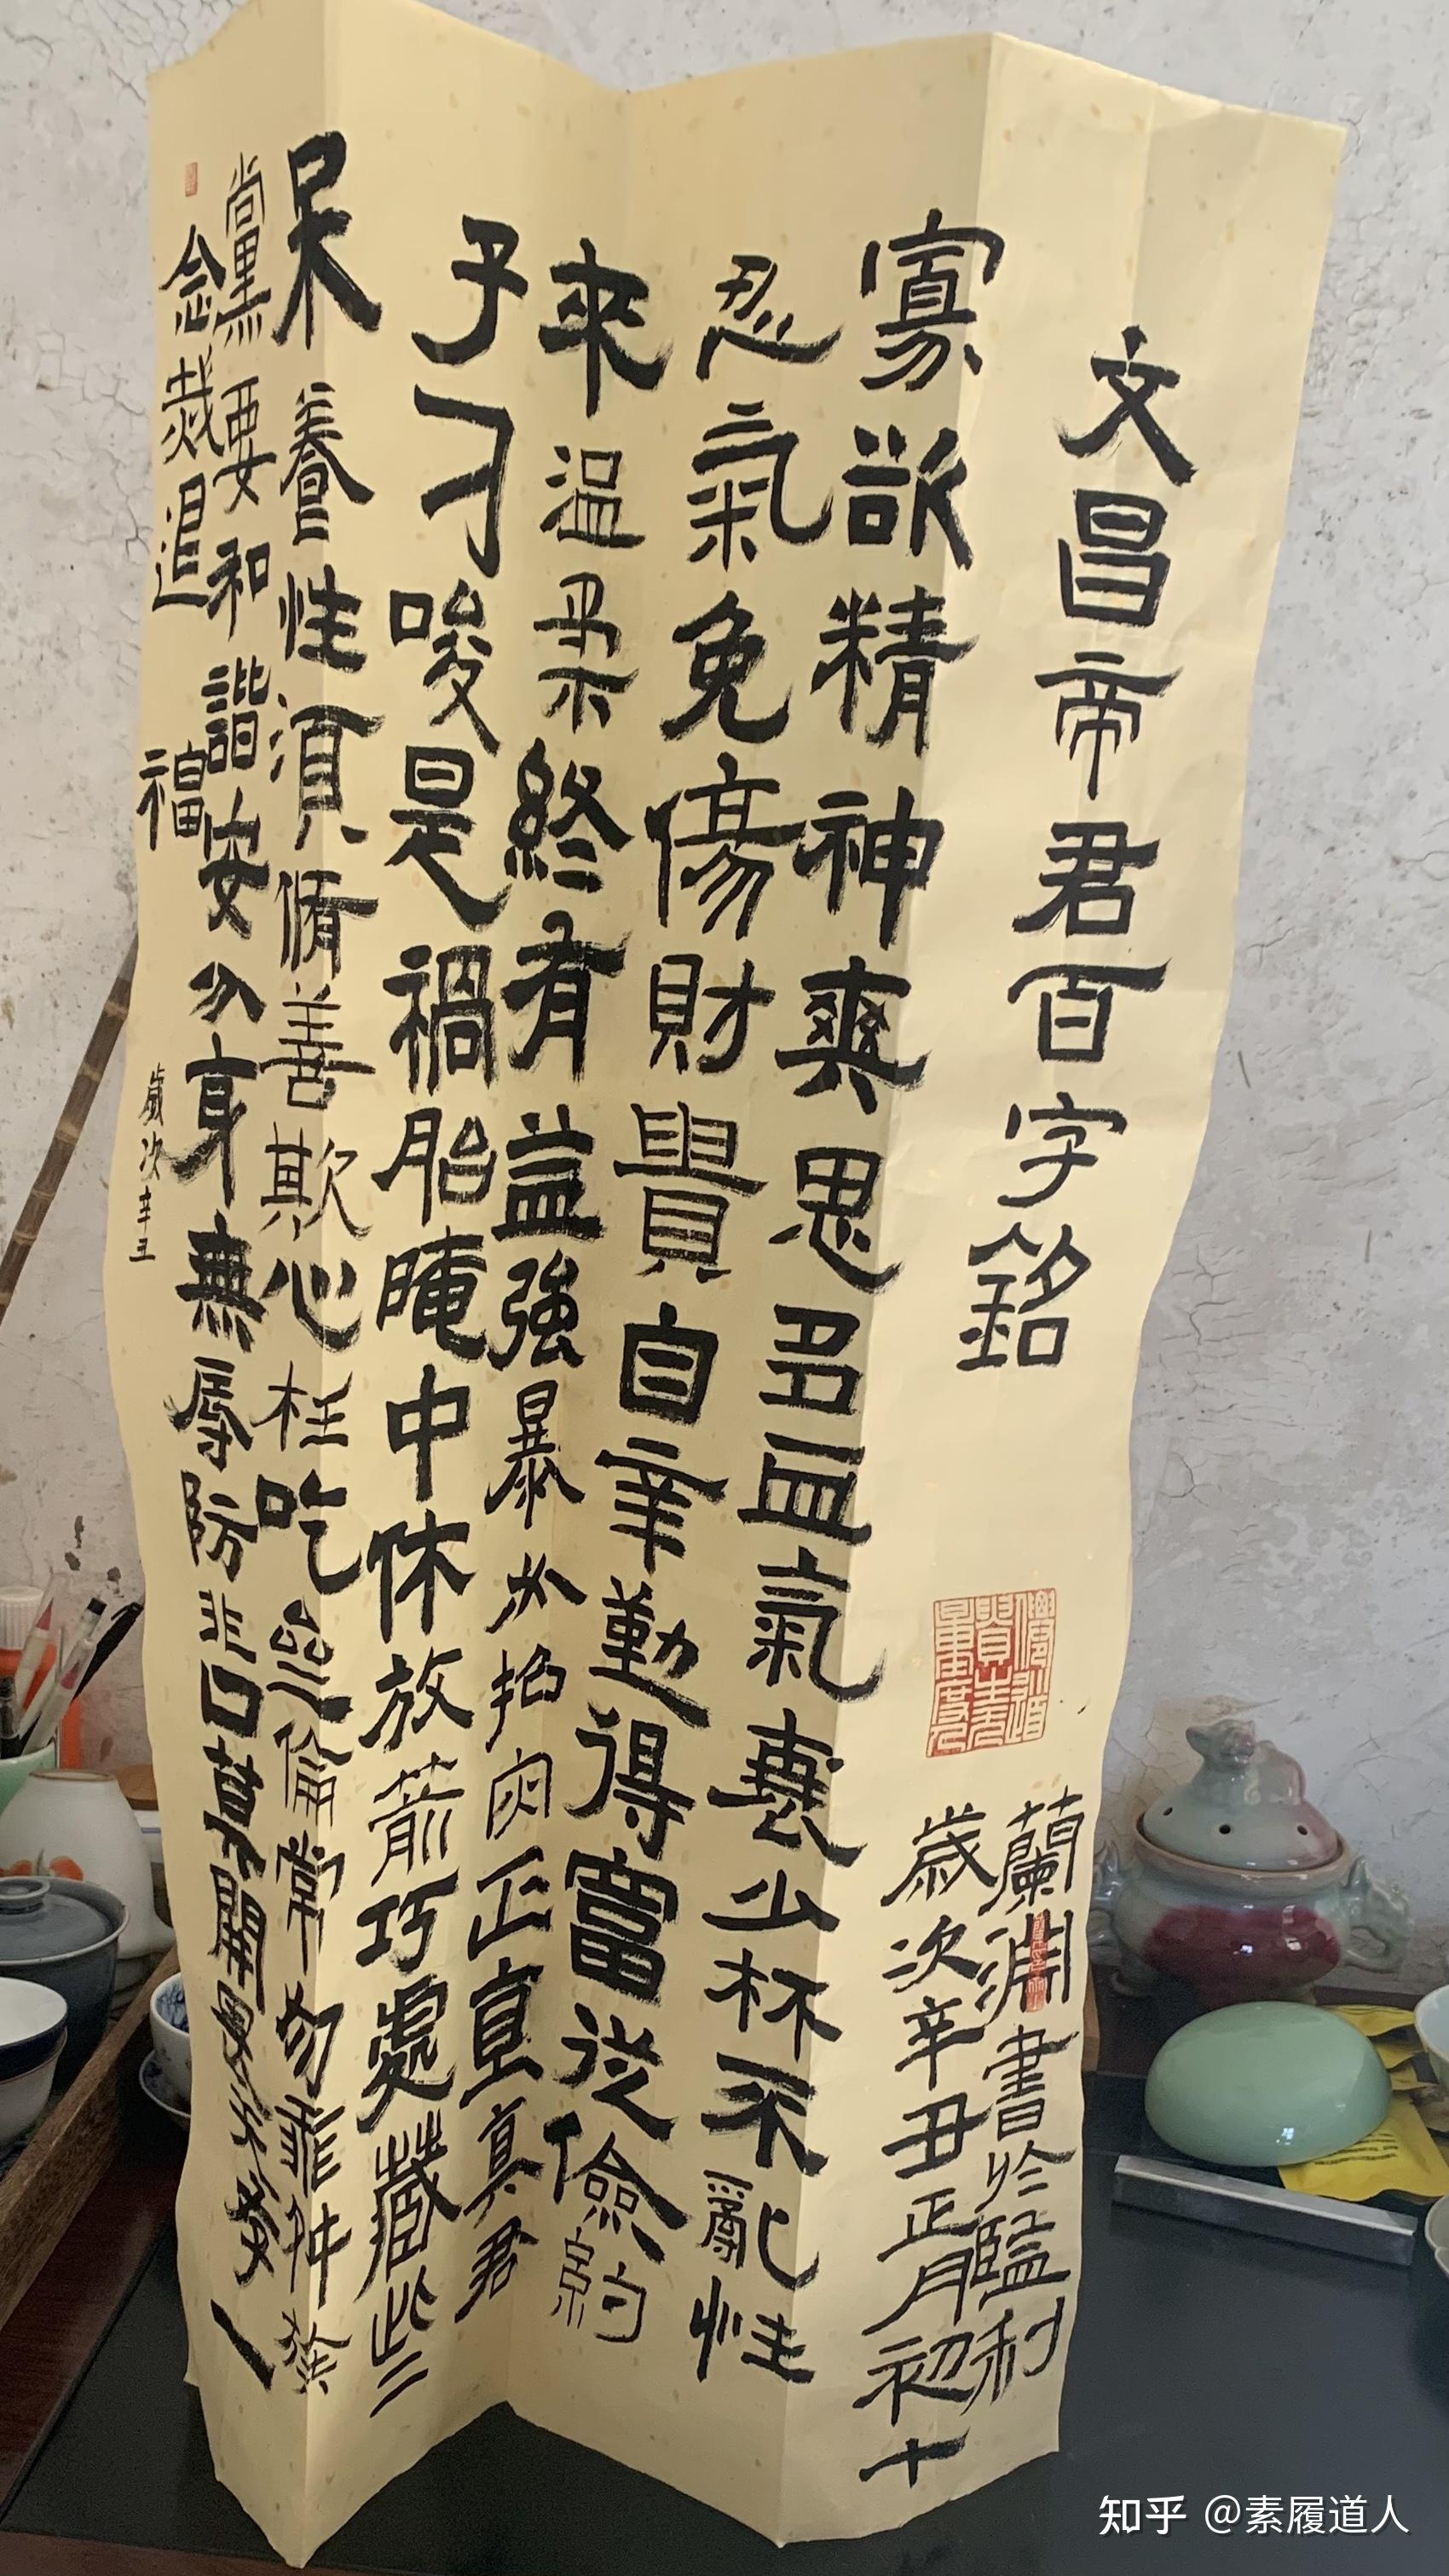 文昌帝君百字銘
蘭淵書於監利
歲次辛丑正月初十
寡欲精神爽思多血氣衰少杯不亂性
忍氣免傷財貴自辛勤得富從儉約
來溫柔終有益強暴必招凶正直真君
子刁唆是禍胎晻中休放箭巧處藏些
呆養性須脩善欺心枉吃亝倫常勿乖舛族
黨要和諧安分身無辱防非口莫開
念烖退福
歲次辛丑
知乎 @素履道人